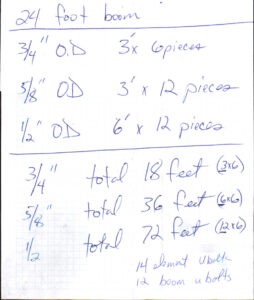 24 foot boom
3/4" O.D 3'x 6pieces
5/8" O.D 3' x 12 pieces
1/2" O.D 6' x 12 pieces
3/4" total 18 feet (3x6)
5/8" total 36 feet (6x6)
1/2 total 72 feet (12x6)
14 element ubolts
12 boom ubolts